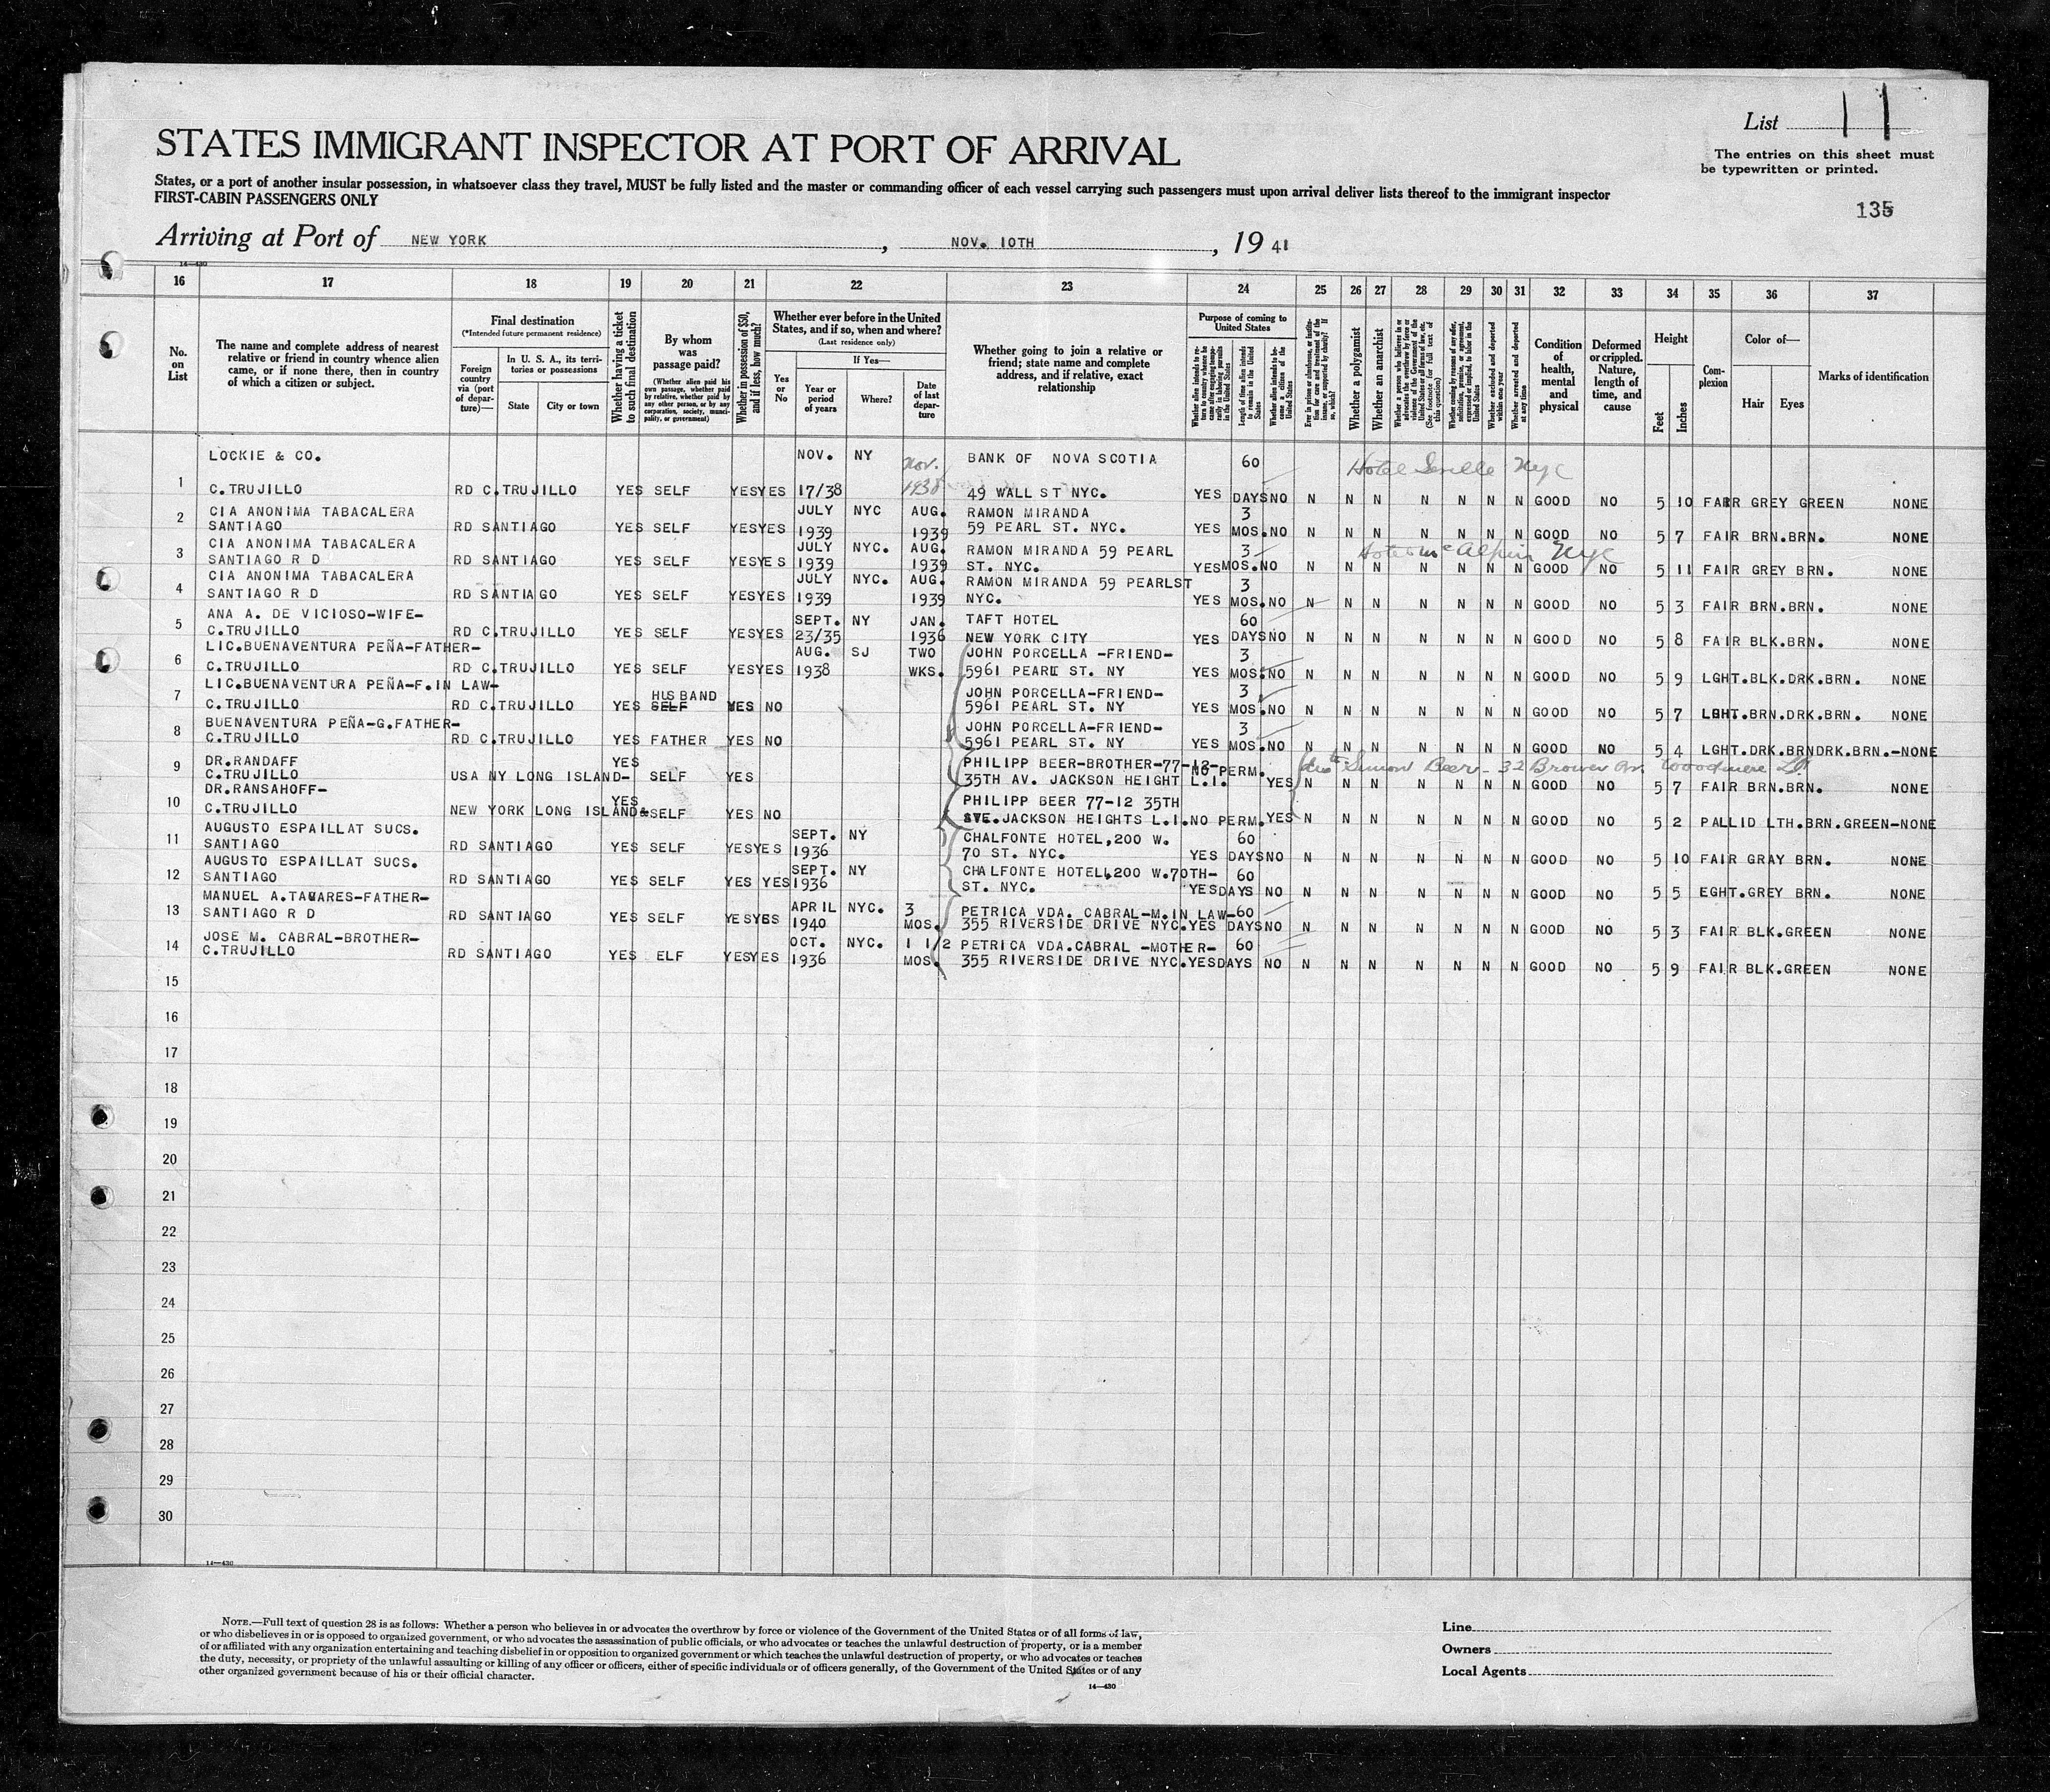 List 11
STATES IMMIGRANT INSPECTOR AT PORT OF ARRIVAL
The entries on this sheet must
be typewritten or printed.
States, or a port of another insular possession, in whatsoever class they travel, MUST be fully listed and the master or commanding officer of each vessel carrying such passengers must upon arrival deliver lists thereof to the immigrant inspector
FIRST-CABIN PASSENGERS ONLY
135
Arriving at Port of NEW YORK, NOV. 10TH, 19 41
14—430
16 17 18 19 20 21 22 23 24 25 26 27 28 29 30 31 32 33 34 35 36 37
No. on List
The name and complete address of nearest relative or friend in country whence alien came, or if none there, then in country of which a citizen or subject.
Final destination
(*Intended future permanent residence)
Foreign country via (port of departure)—
In U. S. A., its territories or possessions
State
City or town
Whether having a ticket to such final destination
By whom was passage paid?
(Whether alien paid his own passage, whether paid by relative, whether paid by any other person, or by any corporation, society, municipality, or government)
Whether in possession of $50, and if less, how much?
Whether ever before in the United States, and if so, when and where?
(Last residence only)
Yes or No
If Yes—
Year or period of years
Where?
Date of last departure
Whether going to join a relative or friend; state name and complete address, and if relative, exact relationship
Purpose of coming to United States
Length of time alien intends to remain in the United States
Whether alien intends to become a citizen of the United States
Whether a polygamist
Whether an anarchist
Whether excluded and deported within one year
Whether arrested and deported at any time
Condition of health, mental and physical
Deformed or crippled. Nature, length of time, and cause
Height
Feet
Inches
Complexion
Color of—
Hair
Eyes
Marks of identification
1 LOCKIE & CO. NOV. NY Nov. BANK OF NOVA SCOTIA 60 Hotel Seville NYC
C.TRUJILLO RD C.TRUJILLO YES SELF YES YES 17/38 1938 49 WALL ST NYC. YES DAYS NO N N N N N N N GOOD NO 5 10 FAIR GREY GREEN NONE
2 CIA ANONIMA TABACALERA JULY NYC AUG. RAMON MIRANDA 3
SANTIAGO RD SANTIAGO YES SELF YES YES 1939 1939 59 PEARL ST. NYC. YES MOS. NO N N N N N N N GOOD NO 5 7 FAIR BRN.BRN. NONE
3 CIA ANONIMA TABACALERA JULY NYC. AUG. RAMON MIRANDA 59 PEARL 3 Hotel McAlpin NYC
SANTIAGO R D RD SANTIAGO YES SELF YES YES 1939 1939 ST. NYC. YES MOS. NO N N N N N N N GOOD NO 5 11 FAIR GREY BRN. NONE
4 CIA ANONIMA TABACALERA JULY NYC. AUG. RAMON MIRANDA 59 PEARLST 3
SANTIAGO R D RD SANTIAGO YES SELF YES YES 1939 1939 NYC. YES MOS. NO N N N N N N N GOOD NO 5 3 FAIR BRN.BRN. NONE
5 ANA A. DE VICIOSO-WIFE- SEPT. NY JAN. TAFT HOTEL 60
C.TRUJILLO RD C.TRUJILLO YES SELF YES YES 23/35 1936 NEW YORK CITY YES DAYS NO N N N N N N N GOOD NO 5 8 FAIR BLK.BRN. NONE
6 LIC.BUENAVENTURA PEÑA-FATHER- AUG. SJ TWO JOHN PORCELLA -FRIEND- 3
C.TRUJILLO RD C.TRUJILLO YES SELF YES YES 1938 WKS. 5961 PEARL ST. NY YES MOS. NO N N N N N N N GOOD NO 5 9 LGHT.BLK.DRK.BRN. NONE
7 LIC.BUENAVENTURA PEÑA-F.IN LAW- HUSBAND JOHN PORCELLA-FRIEND- 3
C.TRUJILLO RD C.TRUJILLO YES SELF YES NO 5961 PEARL ST. NY YES MOS. NO N N N N N N N GOOD NO 5 7 LGHT.BRN.DRK.BRN. NONE
8 BUENAVENTURA PEÑA-G.FATHER- JOHN PORCELLA-FRIEND- 3
C.TRUJILLO RD C.TRUJILLO YES FATHER YES NO 5961 PEARL ST. NY YES MOS. NO N N N N N N N GOOD NO 5 4 LGHT.DRK.BRNDRK.BRN.-NONE
9 DR.RANDAFF YES PHILIPP BEER-BROTHER-77-12- NO PERM. Simon Beer - 32 Brower Av. Woodmere L.I.
C.TRUJILLO USA NY LONG ISLAND- SELF YES 35TH AV. JACKSON HEIGHT L.I. YES N N N N N N N GOOD NO 5 7 FAIR BRN.BRN. NONE
10 DR.RANSAHOFF- YES PHILIPP BEER 77-12 35TH
C.TRUJILLO NEW YORK LONG ISLAND SELF YES NO AVE.JACKSON HEIGHTS L.I. NO PERM. YES N N N N N N N GOOD NO 5 2 PALLID LTH.BRN.GREEN-NONE
11 AUGUSTO ESPAILLAT SUCS. SEPT. NY CHALFONTE HOTEL,200 W. 60
SANTIAGO RD SANTIAGO YES SELF YES YES 1936 70 ST. NYC. YES DAYS NO N N N N N N N GOOD NO 5 10 FAIR GRAY BRN. NONE
12 AUGUSTO ESPAILLAT SUCS. SEPT. NY CHALFONTE HOTEL,200 W.70TH- 60
SANTIAGO RD SANTIAGO YES SELF YES YES 1936 ST. NYC. YES DAYS NO N N N N N N N GOOD NO 5 5 EGHT.GREY BRN. NONE
13 MANUEL A.TAVARES-FATHER- APRIL NYC. 3 PETRICA VDA. CABRAL-M.IN LAW- 60
SANTIAGO R D RD SANTIAGO YES SELF YES YES 1940 MOS. 355 RIVERSIDE DRIVE NYC. YES DAYS NO N N N N N N N GOOD NO 5 3 FAIR BLK.GREEN NONE
14 JOSE M. CABRAL-BROTHER- OCT. NYC. 1 1/2 PETRICA VDA.CABRAL -MOTHER- 60
C.TRUJILLO RD SANTIAGO YES ELF YES YES 1936 MOS. 355 RIVERSIDE DRIVE NYC. YES DAYS NO N N N N N N N GOOD NO 5 9 FAIR BLK.GREEN NONE
15
16
17
18
19
20
21
22
23
24
25
26
27
28
29
30
14—430
NOTE.—Full text of question 28 is as follows: Whether a person who believes in or advocates the overthrow by force or violence of the Government of the United States or of all forms of law,
or who disbelieves in or is opposed to organized government, or who advocates the assassination of public officials, or who advocates or teaches the unlawful destruction of property, or is a member
of or affiliated with any organization entertaining and teaching disbelief in or opposition to organized government or which teaches the unlawful destruction of property, or who advocates or teaches
the duty, necessity, or propriety of the unlawful assaulting or killing of any officer or officers, either of specific individuals or of officers generally, of the Government of the United States or of any
other organized government because of his or their official character.
14—430
Line
Owners
Local Agents